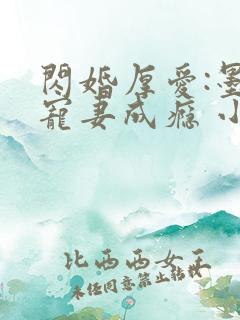 閃婚厚愛:墨
寵妻成癮 小
比西西女王
未经同意禁止转载